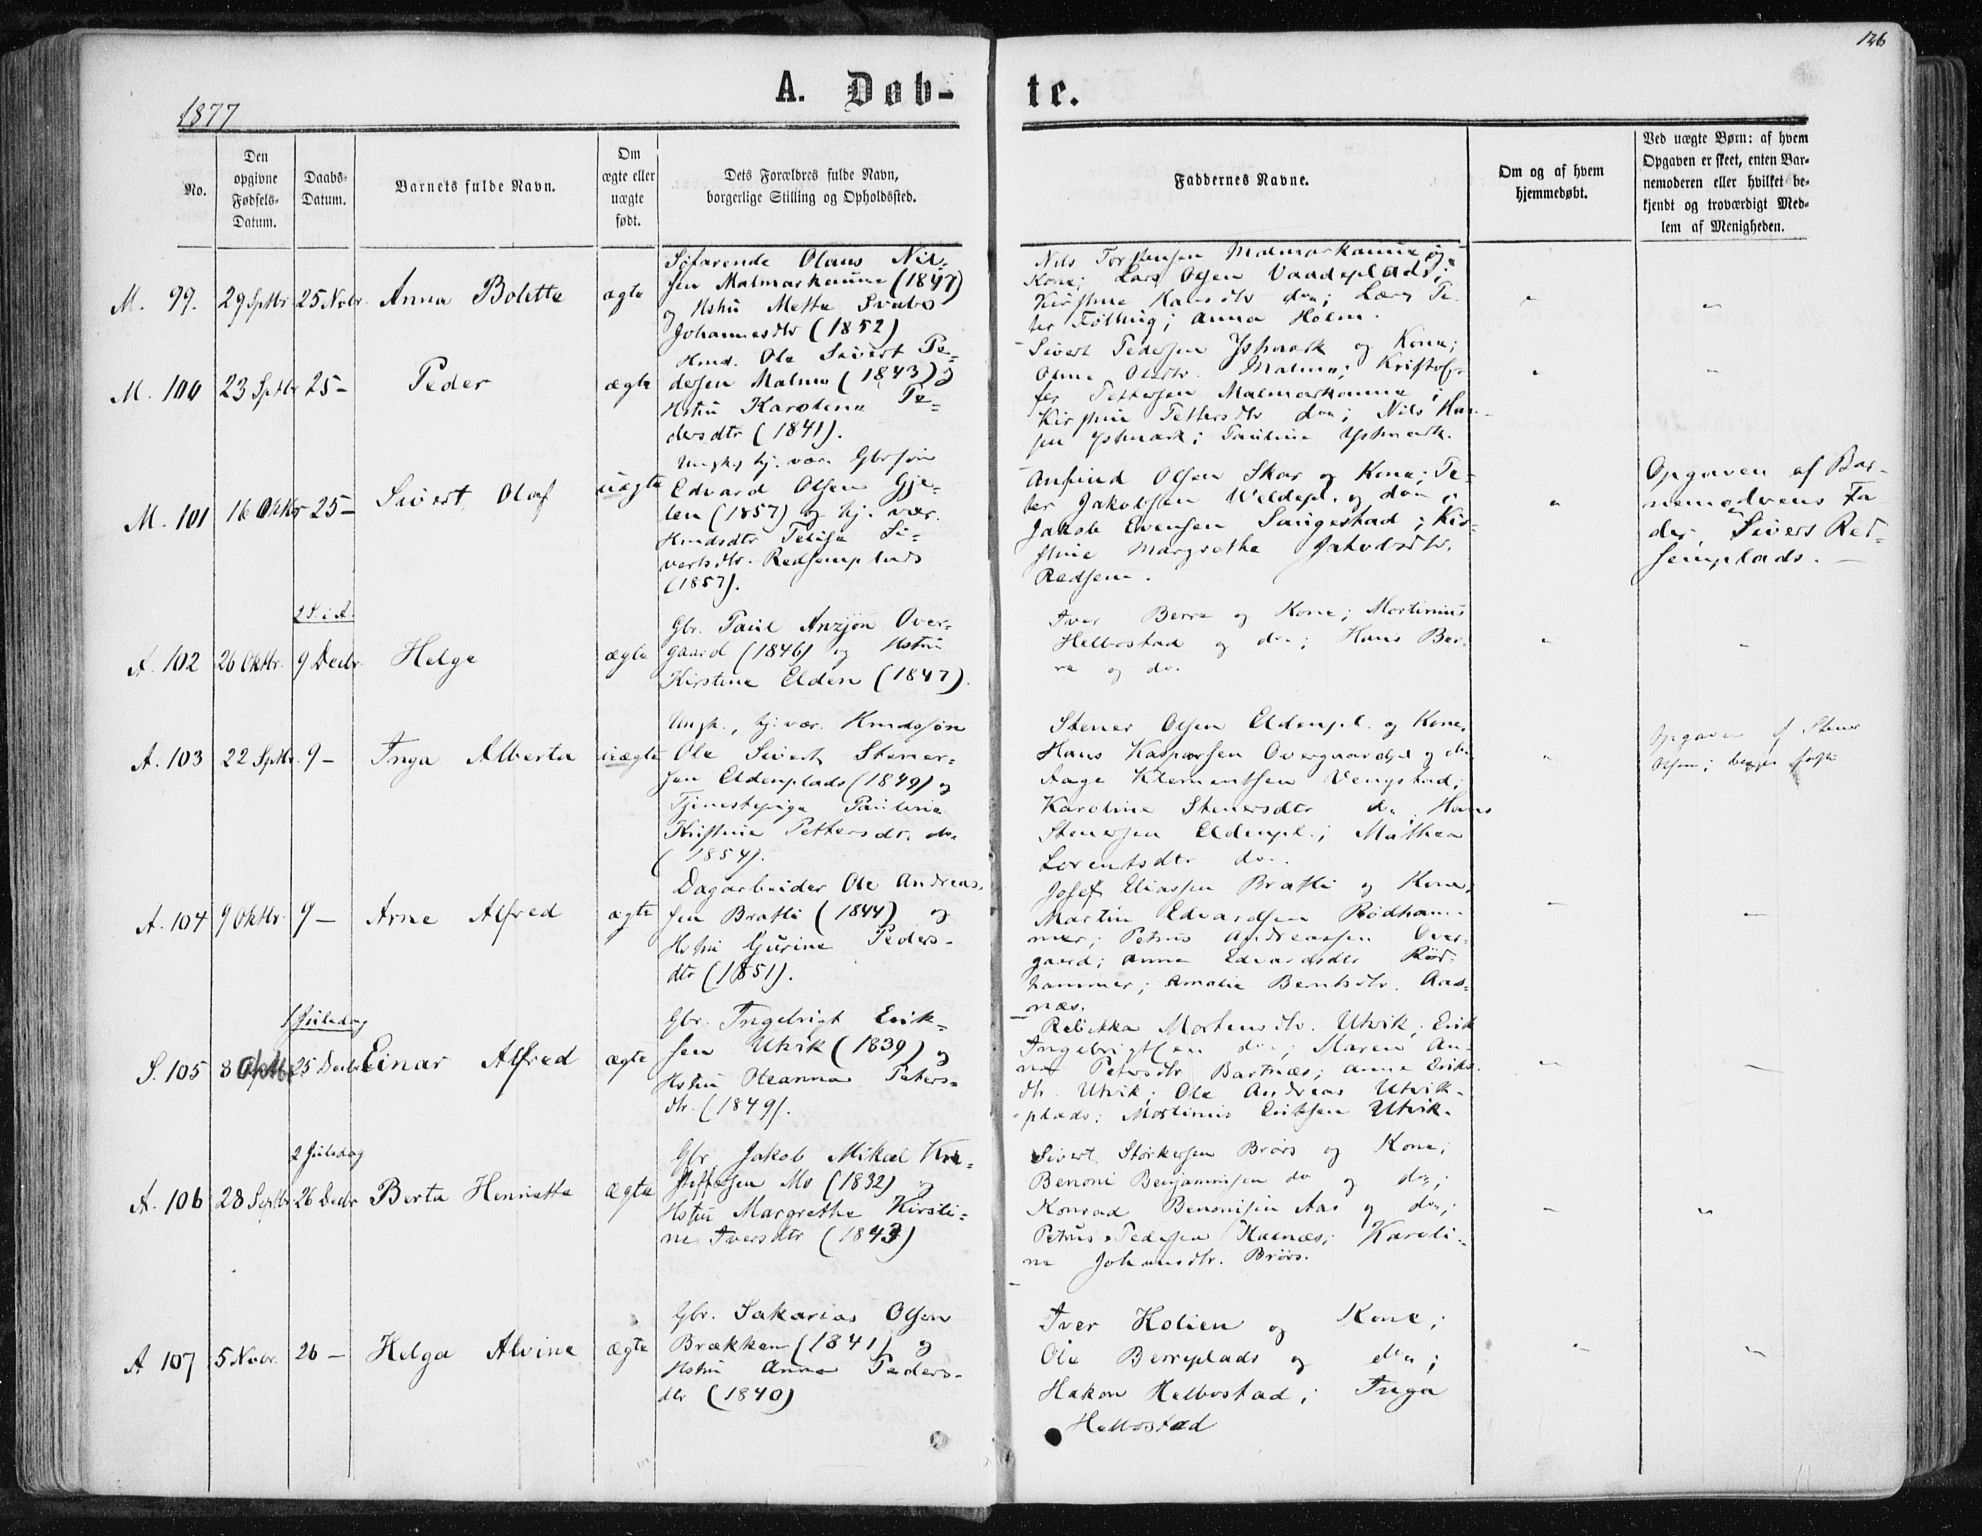 126
1877
A. Døb-
te.
No.
Den
opgivne
Fødsels-
Datum.
Daabs-
Datum.
Barnets fulde Navn.
Om
ægte eller
uægte
født.
Dets Forældres fulde Navn,
borgerlige Stilling og Opholdssted.
Faddernes Navne.
Om og af hvem
hjemmedøbt.
Ved uægte Børn: af hvem
Opgaven er skeet, enten Bar-
nemoderen eller hvilket be-
kjendt og troværdigt Med-
lem af Menigheden.
M. 99. 29 Sptbr 25 Novbr Anna Bolette ægte
Søfarende Olaus Nil-
sen Malmarkaune (1847)
og Hstu Mette Svabo
Johannesdtr (1852)
Nils Torstensen Malmarkaune og
Kone; Lars Olsen Vaadeplads;
Kirstine Hansdtr do; Lars Pe-
ter Følling; Anna Holm.
M. 100 23 Sptbr 25 – Peder ægte
Hmd. Ole Sivert Pe-
dersen Malmo (1843) og
Hstu Karolena Pe-
dersdtr (1841).
Sivert Pedersen Ystmark og Kone;
Oline Olsdtr. Malmo; Kristof-
fer Pettersen Malmarkaune;
Kirstine Pettersdtr do; Nils Han-
sen Ystmark; Pauline Ystmark.
M. 101 16 Oktbr 25 – Sivert Olaf uægte
Ungk. hj. vær. Gbrsøn
Edvard Olsen Gje-
len (1857) og hj. vær.
Hmdsdtr Telise Si-
vertsdtr. Redsemplads
(1857).
Anfind Olsen Skar og Kone; Pe-
ter Jakobsen Weldepl. og do;
Jakob Evensen Saugestad; Kir-
stine Margrethe Jakobsdtr.
Redsem.
Opgaven af Bar-
nemoderens Fa
der, Sivert Red-
semplads. –
2 S. i A.
A. 102 26 Oktbr. 9 Decbr. Helge ægte
Gbr. Paul Anzjøn Over-
gaard (1846) og Hstu
Kirstine Elden (1847).
Iver Berre og Kone; Mortinius
Helbostad og do; Hans Ber-
re og do.
A. 103 22 Sptbr. 9 – Inga Alberta uægte
Ungk., hj. vær. Hmdssøn
Ole Sivert Stener-
sen Eldenplads (1849) og
Tjenestepige Pauline
Kristine Pettersdtr. do
(1854).
Stener Olsen Eldenpl. og Kone,
Hans Kaspersen Overgaardspl og do
Aage Klementsen Vengstad;
Karoline Stenersdtr do Hans
Stenersen Eldenpl.; Mathea
Lorentsdtr do.
Opgaven af Stener
Olsen; begge
A. 104 9 Oktbr. 9 – Arne Alfred ægte
Dagarbeider Ole Andreas-
sen Bratli (1844) og
Hstu Gurine Peders-
dtr (1851).
Josef Eliassen Bratli og Kone,
Martin Edvardsen Rødham-
mer; Petrus Andreassen Over-
gaard; Anna Edvardsdtr Rød-
hammer; Amalie Berntsdtr. Aas-
næs.
1 Juledag
S. 105 8 Oktbr 25 Decbr Einar Alfred ægte
Gbr. Ingebrigt Erik-
sen Utvik (1839) og
Hstu Oleanna Peters-
dtr. (1849).
Rebekka Mortensdtr. Utvik; Erik
Ingebrigtsen do; Maren An-
na Petersdtr Bartnæs; Anna Eriks-
dtr. Utvik; Ole Andreas Utvik-
plads; Mortinus Eriksen Utvik.
2 Juledag
A. 106 28 Septbr 26 Decbr Berta Henriette ægte
Gbr Jakob Mikael Kri-
stoffersen Mo (1832) og
Hstu Margrethe Kirsti-
ne Iversdtr (1843)
Sivert Størkersen Brørs og Kone;
Benoni Benjaminsen do og do;
Konrad Benonisen Aas og do;
Petrus Pedersen Halnæs; Karoli-
ne Johansdtr. Brørs.
A 107 5 Novbr. 26 – Helga Alvine ægte
Gbr. Sakarias Olsen
Brækken (1841) og
Hstu Anna Peders-
dtr (1840)
Iver Holien og Kone;
Ole Berreplads og do;
Hakon Helbostad; Inga
Helbostad